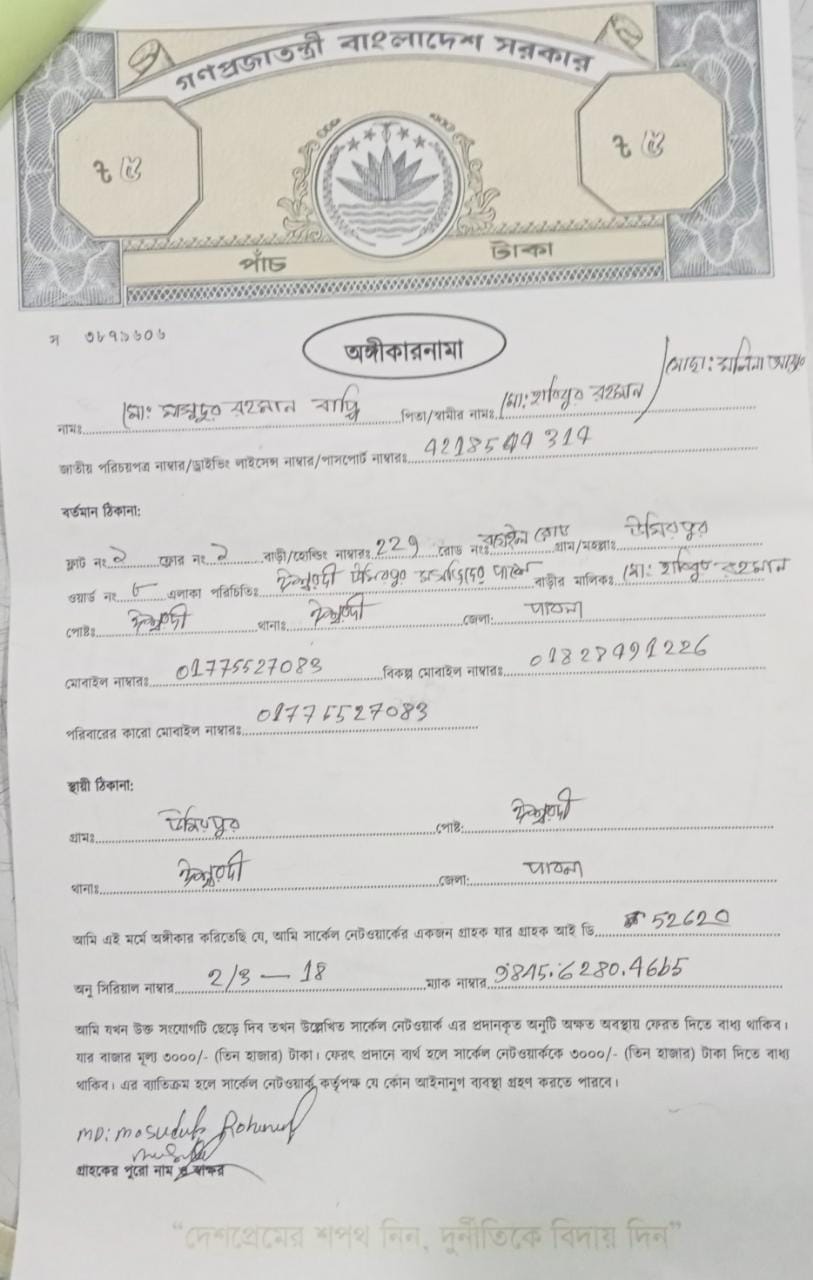 গণপ্রজাতন্ত্রী বাংলাদেশ সরকার
৳ ৫ ৳ ৫
পাঁচ টাকা
অঙ্গীকারনামা
নামঃ মো: মাসুদুর রহমান পিতা/স্বামীর নামঃ মো: রহমান / মোছা:
জাতীয় পরিচয়পত্র নাম্বার/ড্রাইভিং লাইসেন্স নাম্বার/পাসপোর্ট নাম্বারঃ
বর্তমান ঠিকানা:
ফ্লাট নং ২ ফ্লোর নং ২ বাড়ী/হোল্ডিং নাম্বারঃ 229 রোড নংঃ গ্রাম/মহল্লাঃ
ওয়ার্ড নং ৮ এলাকা পরিচিতিঃ ঈশ্বরদী বাড়ীর মালিকঃ মো: রহমান
পোষ্টঃ ঈশ্বরদী থানাঃ ঈশ্বরদী জেলা: পাবনা
মোবাইল নাম্বারঃ 01775527083 বিকল্প মোবাইল নাম্বারঃ
পরিবারের কারো মোবাইল নাম্বারঃ 01775527083
স্থায়ী ঠিকানা:
গ্রামঃ পোষ্ট: ঈশ্বরদী
থানাঃ ঈশ্বরদী জেলা: পাবনা
আমি এই মর্মে অঙ্গীকার করিতেছি যে, আমি সার্কেল নেটওয়ার্কের একজন গ্রাহক যার গ্রাহক আই ডি 52620
অনু সিরিয়াল নাম্বার 2/3 — 18 ম্যাক নাম্বার 9845.6280.4665
আমি যখন উক্ত সংযোগটি ছেড়ে দিব তখন উল্লেখিত সার্কেল নেটওয়ার্ক এর প্রদানকৃত অনুটি অক্ষত অবস্থায় ফেরত দিতে বাধ্য থাকিব।
যার বাজার মূল্য ৩০০০/- (তিন হাজার) টাকা। ফেরৎ প্রদানে ব্যর্থ হলে সার্কেল নেটওয়ার্ককে ৩০০০/- (তিন হাজার) টাকা দিতে বাধ্য
থাকিব। এর ব্যতিক্রম হলে সার্কেল নেটওয়ার্ক কর্তৃপক্ষ যে কোন আইনানুগ ব্যবস্থা গ্রহণ করতে পারবে।
MD: Mosudur Rohman
গ্রাহকের পুরো নাম ও স্বাক্ষর
“দেশপ্রেমের শপথ নিন, দুর্নীতিকে বিদায় দিন”